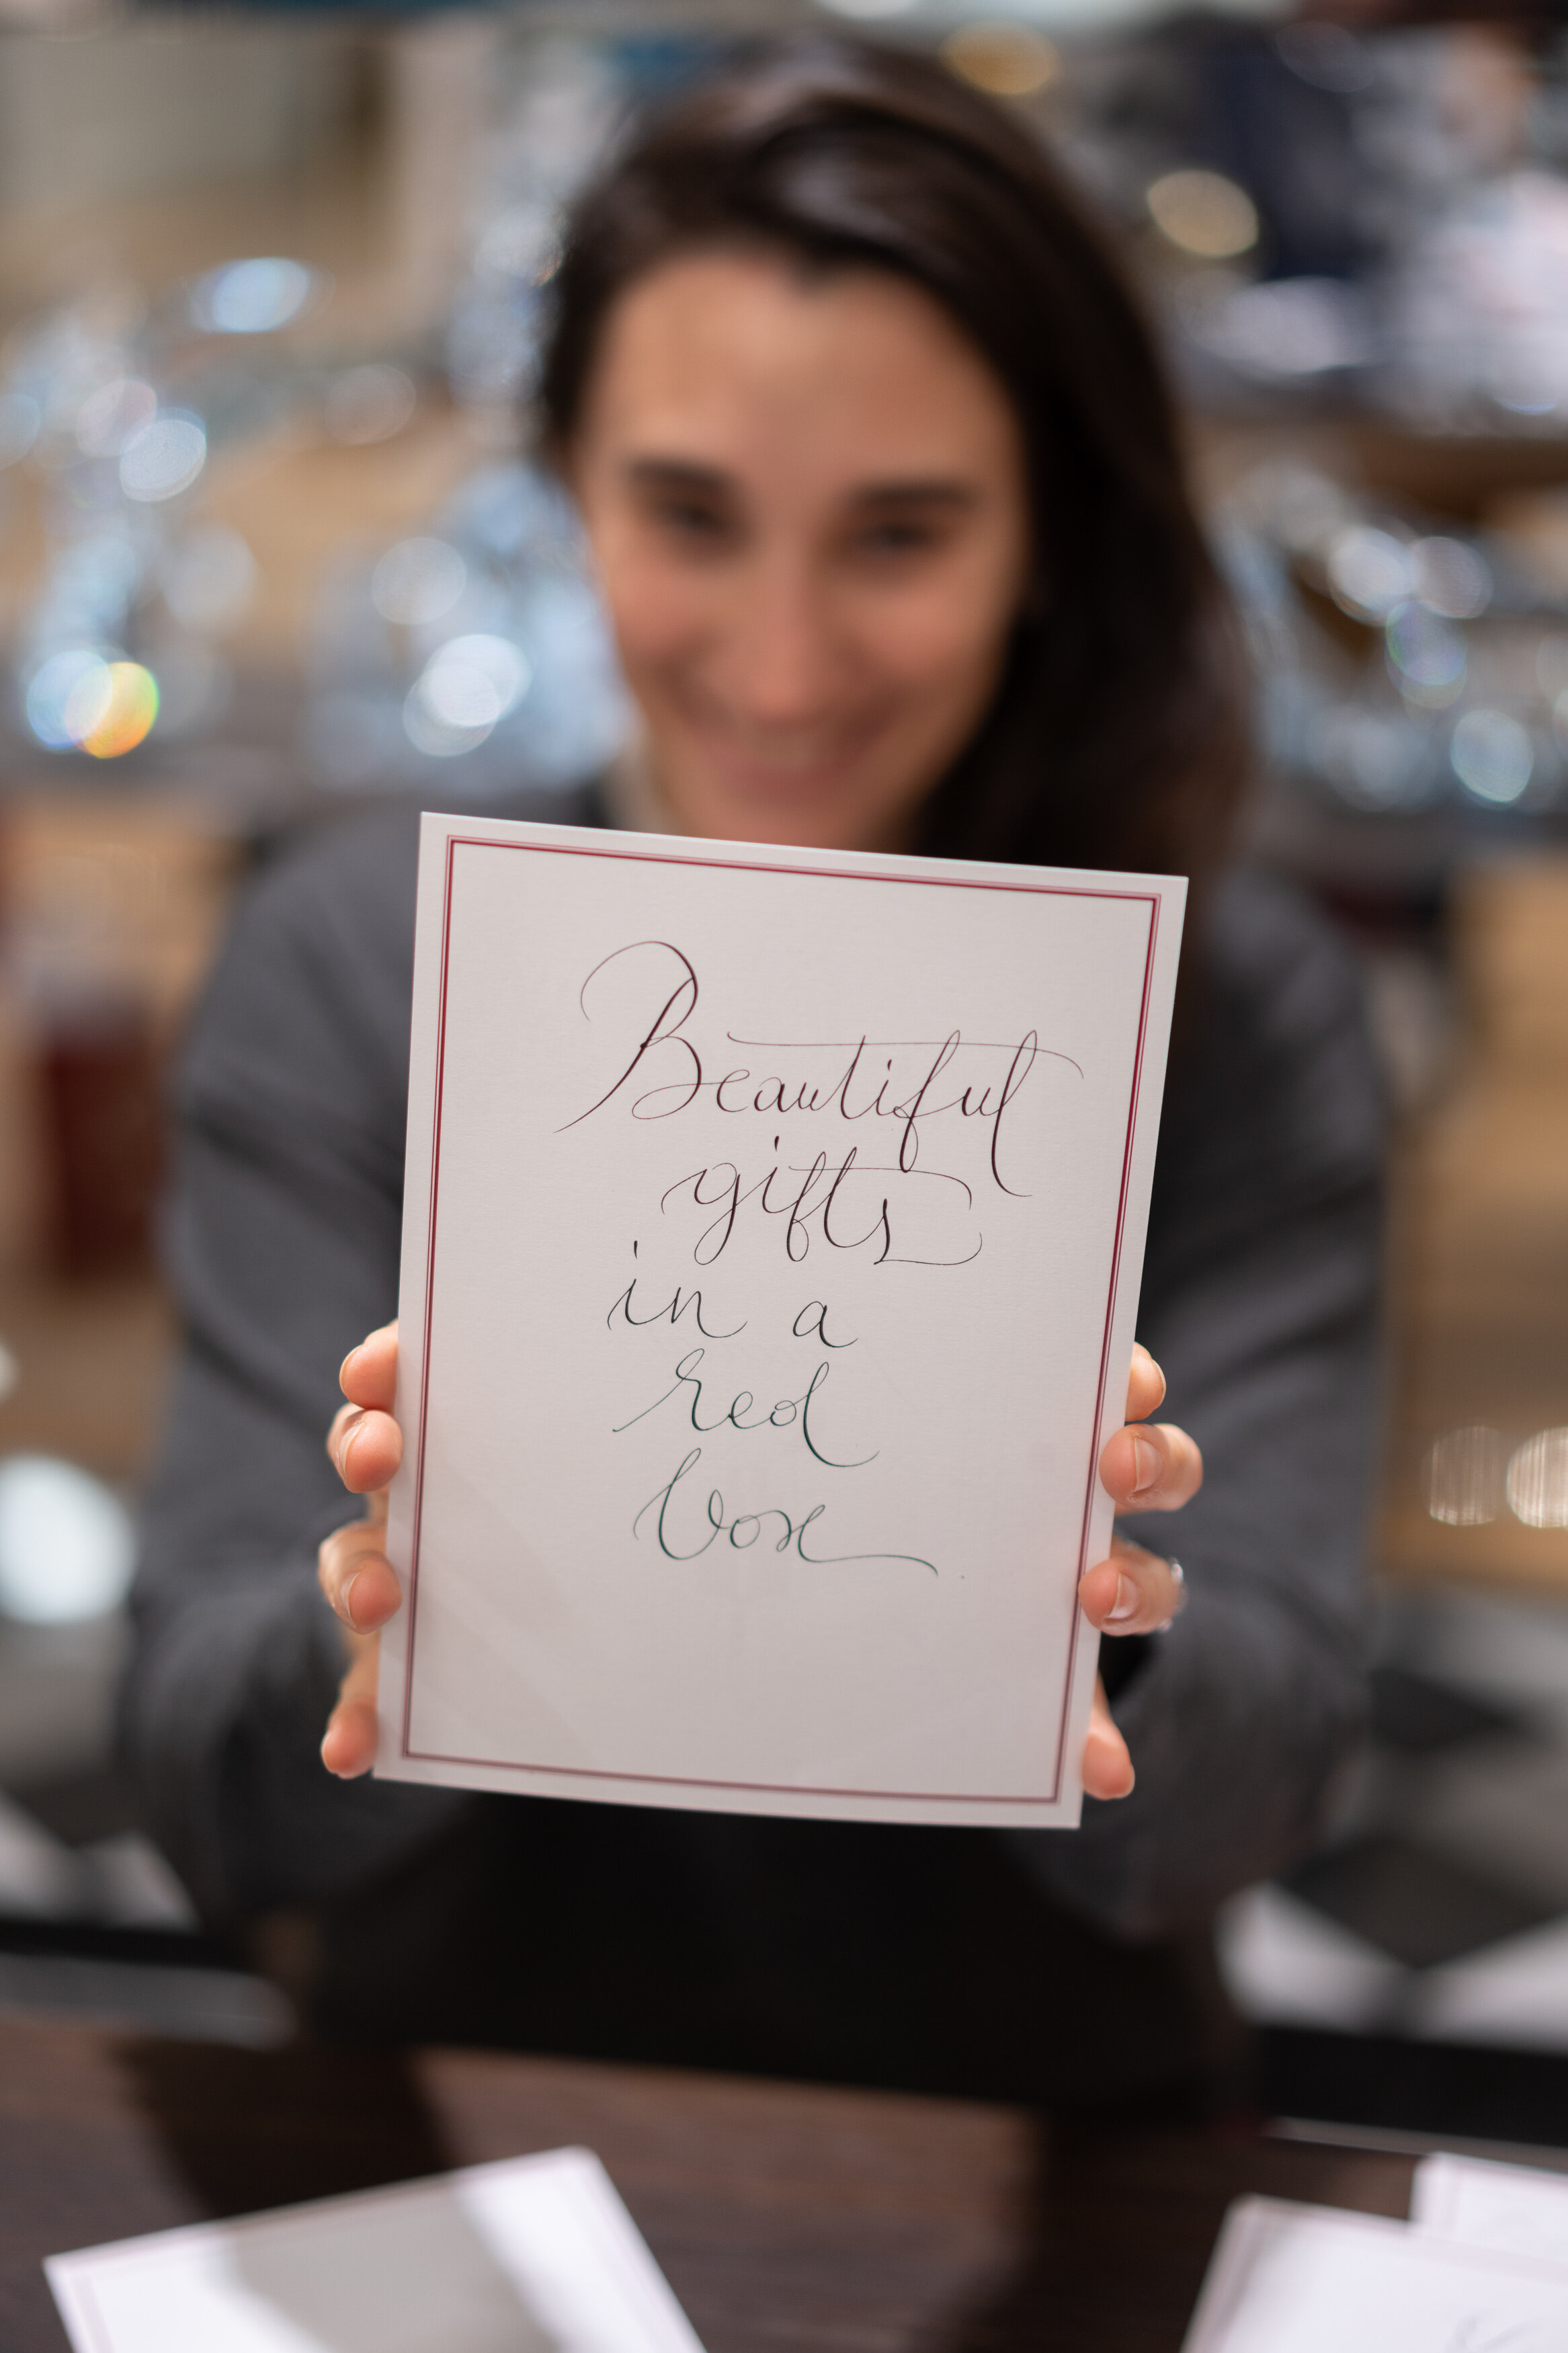 Beautiful
gifts
in a
red
box